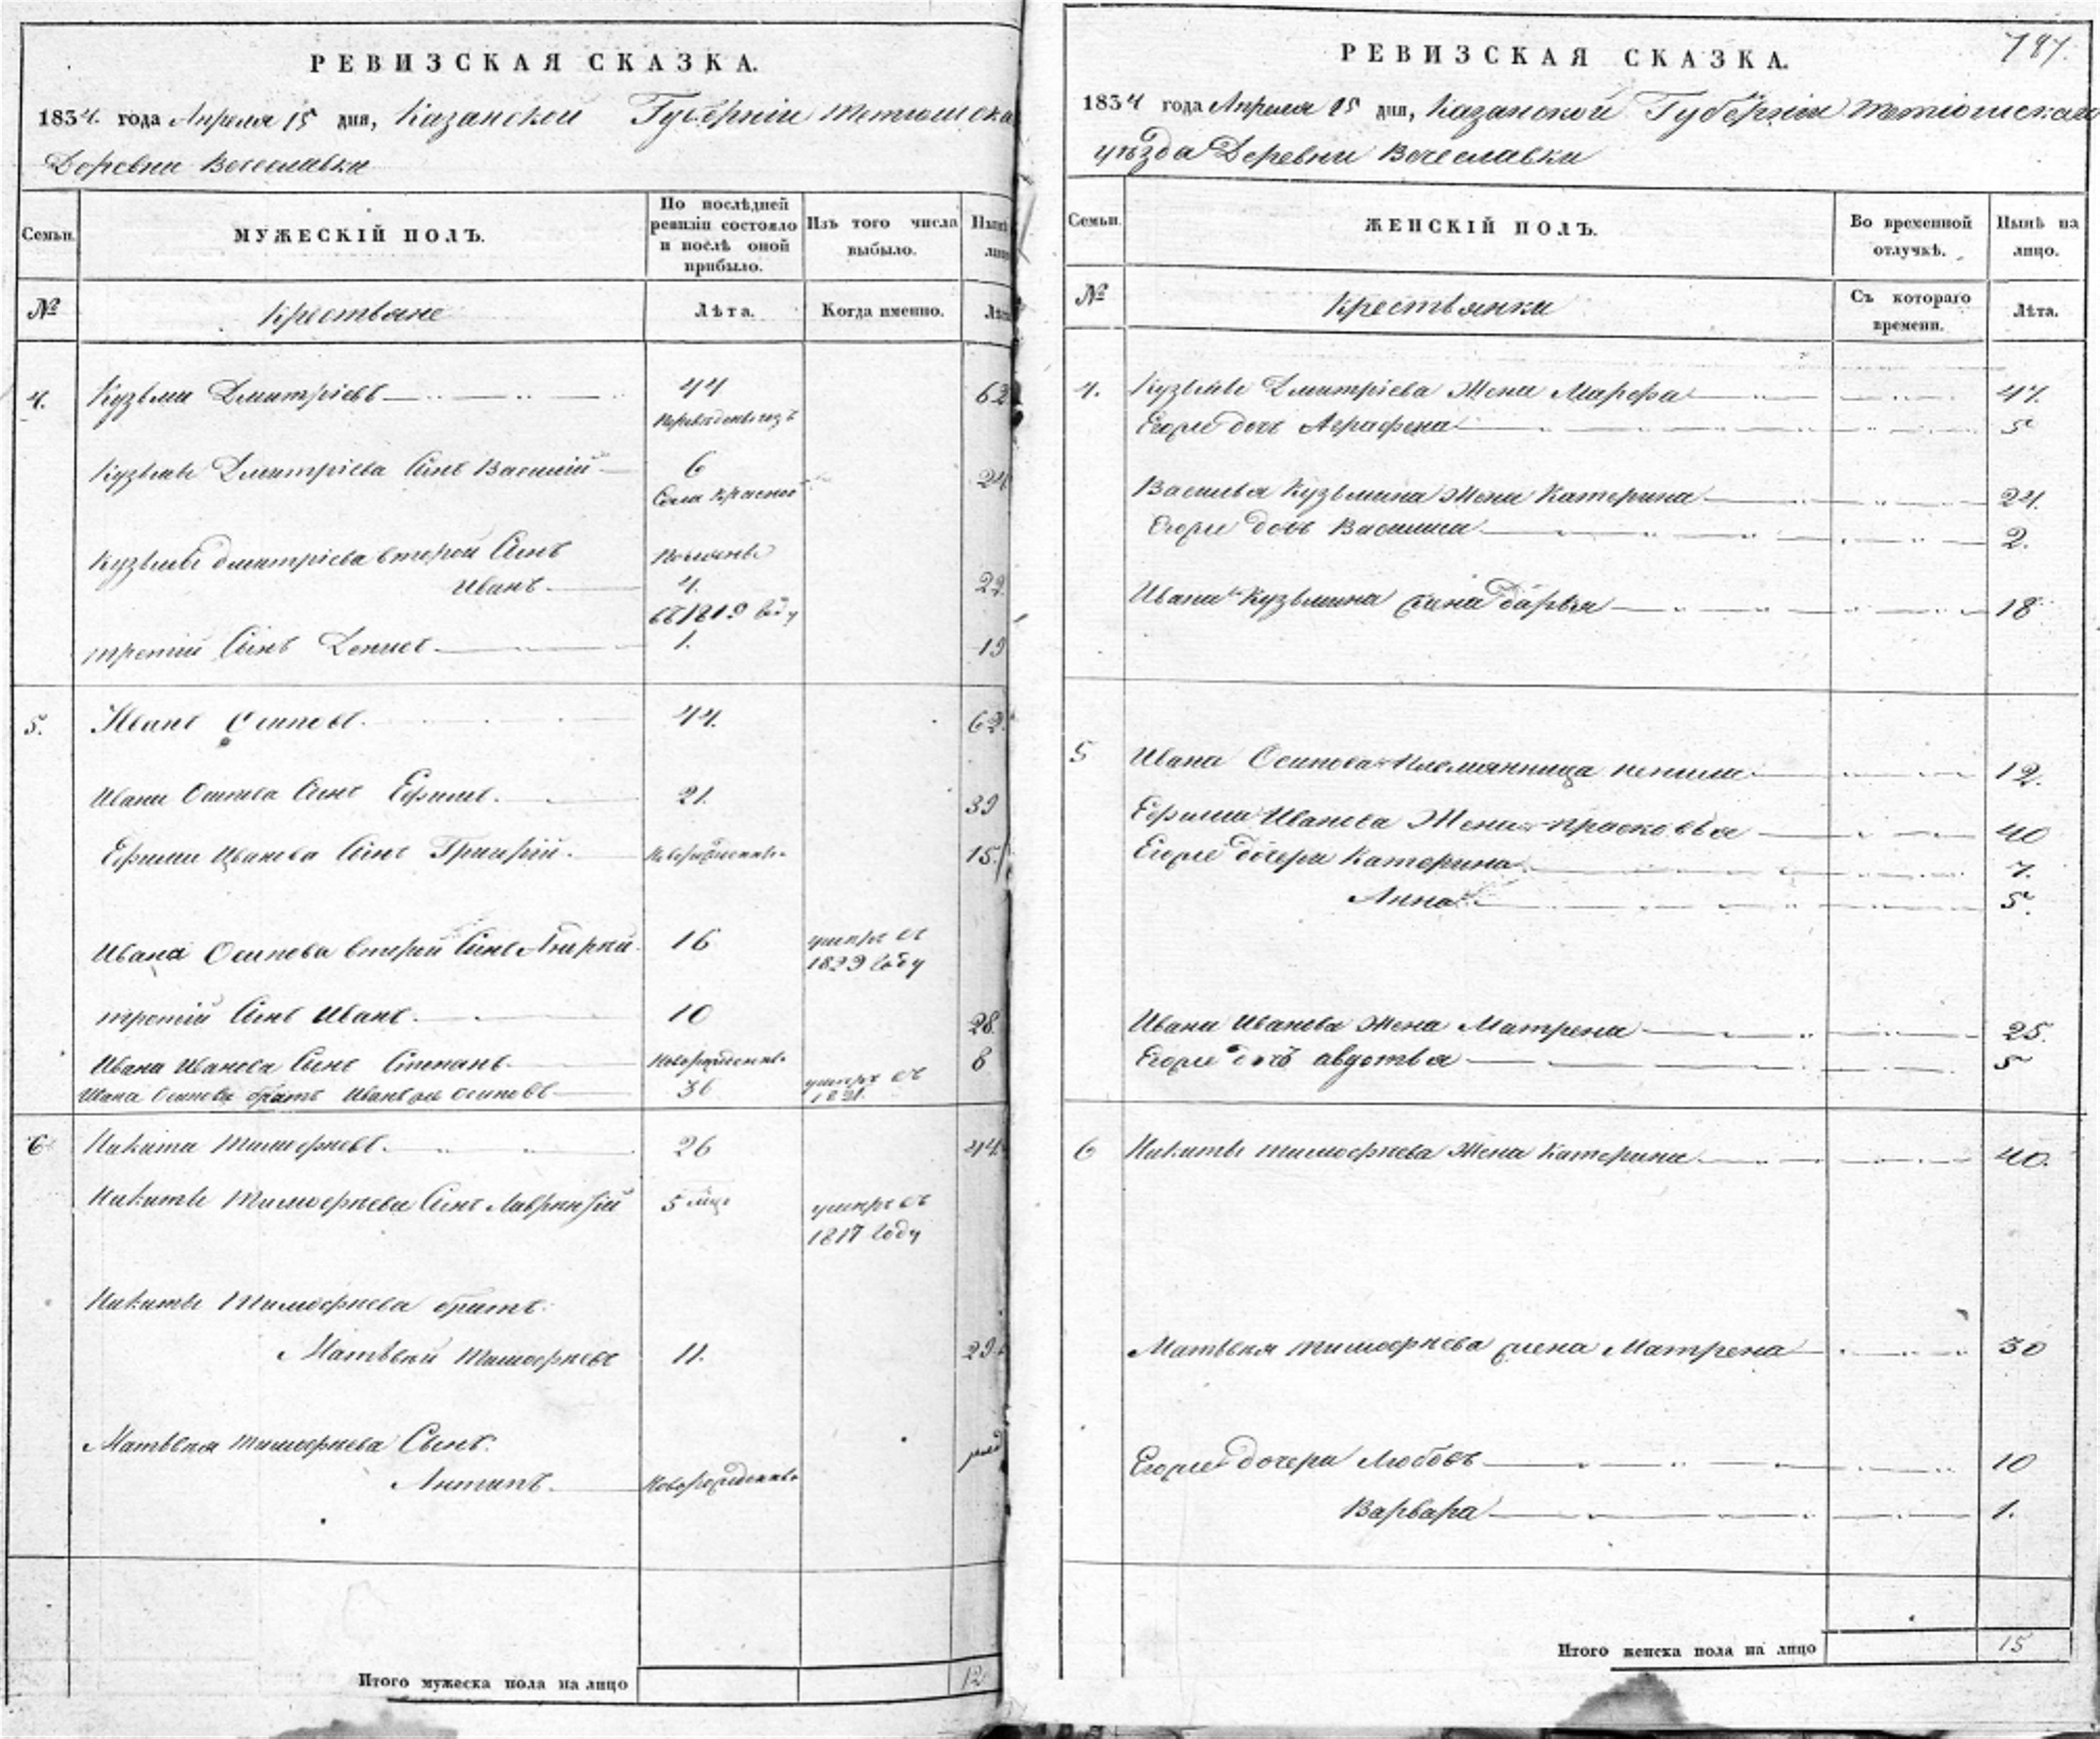 РЕВИЗСКАЯ СКАЗКА.
1834. года Апреля 15 дня, Казанской Губернiи Тетюшска
Деревни Вечеславки
Семьи.
МУЖЕСКІЙ ПОЛЪ.
По послѣдней ревизіи состояло и послѣ оной прибыло.
Изъ того числа выбыло.
№
Крестьяне
Лѣта.
Когда именно.
4. Кузьма Дмитріевъ 44 62
Кузьмы Дмитріева Сынъ Василій 6 24
Села Красной
Кузьмы дмитріева второй Сынъ
Поляны
Иванъ 4. 22.
въ 1819 году
третій Сынъ Денисъ 1. 19
5. Иванъ Осиповъ 44. 62.
Ивана Осипова Сынъ Ефимъ. 21. 39
Ефима Иванова Сынъ Григорій. Новорожденъ 15.
Ивана Осипова второй Сынъ 16 умеръ въ
1829 году
третій Сынъ Иванъ. 10 28.
Ивана Иванова Сынъ Степанъ. Новорожденъ 8
Ивана Осипова братъ Иванъ Осиповъ 36 умеръ въ
6 Никита Тимофеевъ. 26 44
Никиты Тимофеева Сынъ Лаврентій 5 умеръ въ
1817 году
Никиты Тимофеева братъ
Матвей Тимофеевъ 11. 29.
Матвея Тимофеева Сынъ.
Антипъ. Новорожденъ
Итого мужеска пола на лицо 12
787.
РЕВИЗСКАЯ СКАЗКА.
1834 года Апреля 15 дня, Казанской Губернiи Тетюшскаго
уѣзда Деревни Вечеславки
Семьи.
ЖЕНСКІЙ ПОЛЪ.
Во временной отлучкѣ.
Нынѣ на лицо.
№
Крестьянки
Съ котораго времени.
Лѣта.
4. Кузьмы Дмитріева Жена Марефа 47.
Егоже дочь Аграфена 5
Василья Кузьмина Жена Катерина 24.
Егоже дочь Василиса 2.
Ивана Кузьмина жена дарья 18
5 Ивана Осипова племянница 12.
Ефима Иванова Жена Прасковья 40
Егоже дочери Катерина 7.
Анна 5.
Ивана Иванова Жена Матрена 25.
Егоже дочь авдотья 5
6 Никиты тимофеева Жена Катерина 40.
Матвея тимофеева жена Матрена 30
Егоже дочери Любовь 10
Варвара 1.
Итого женска пола на лицо 15